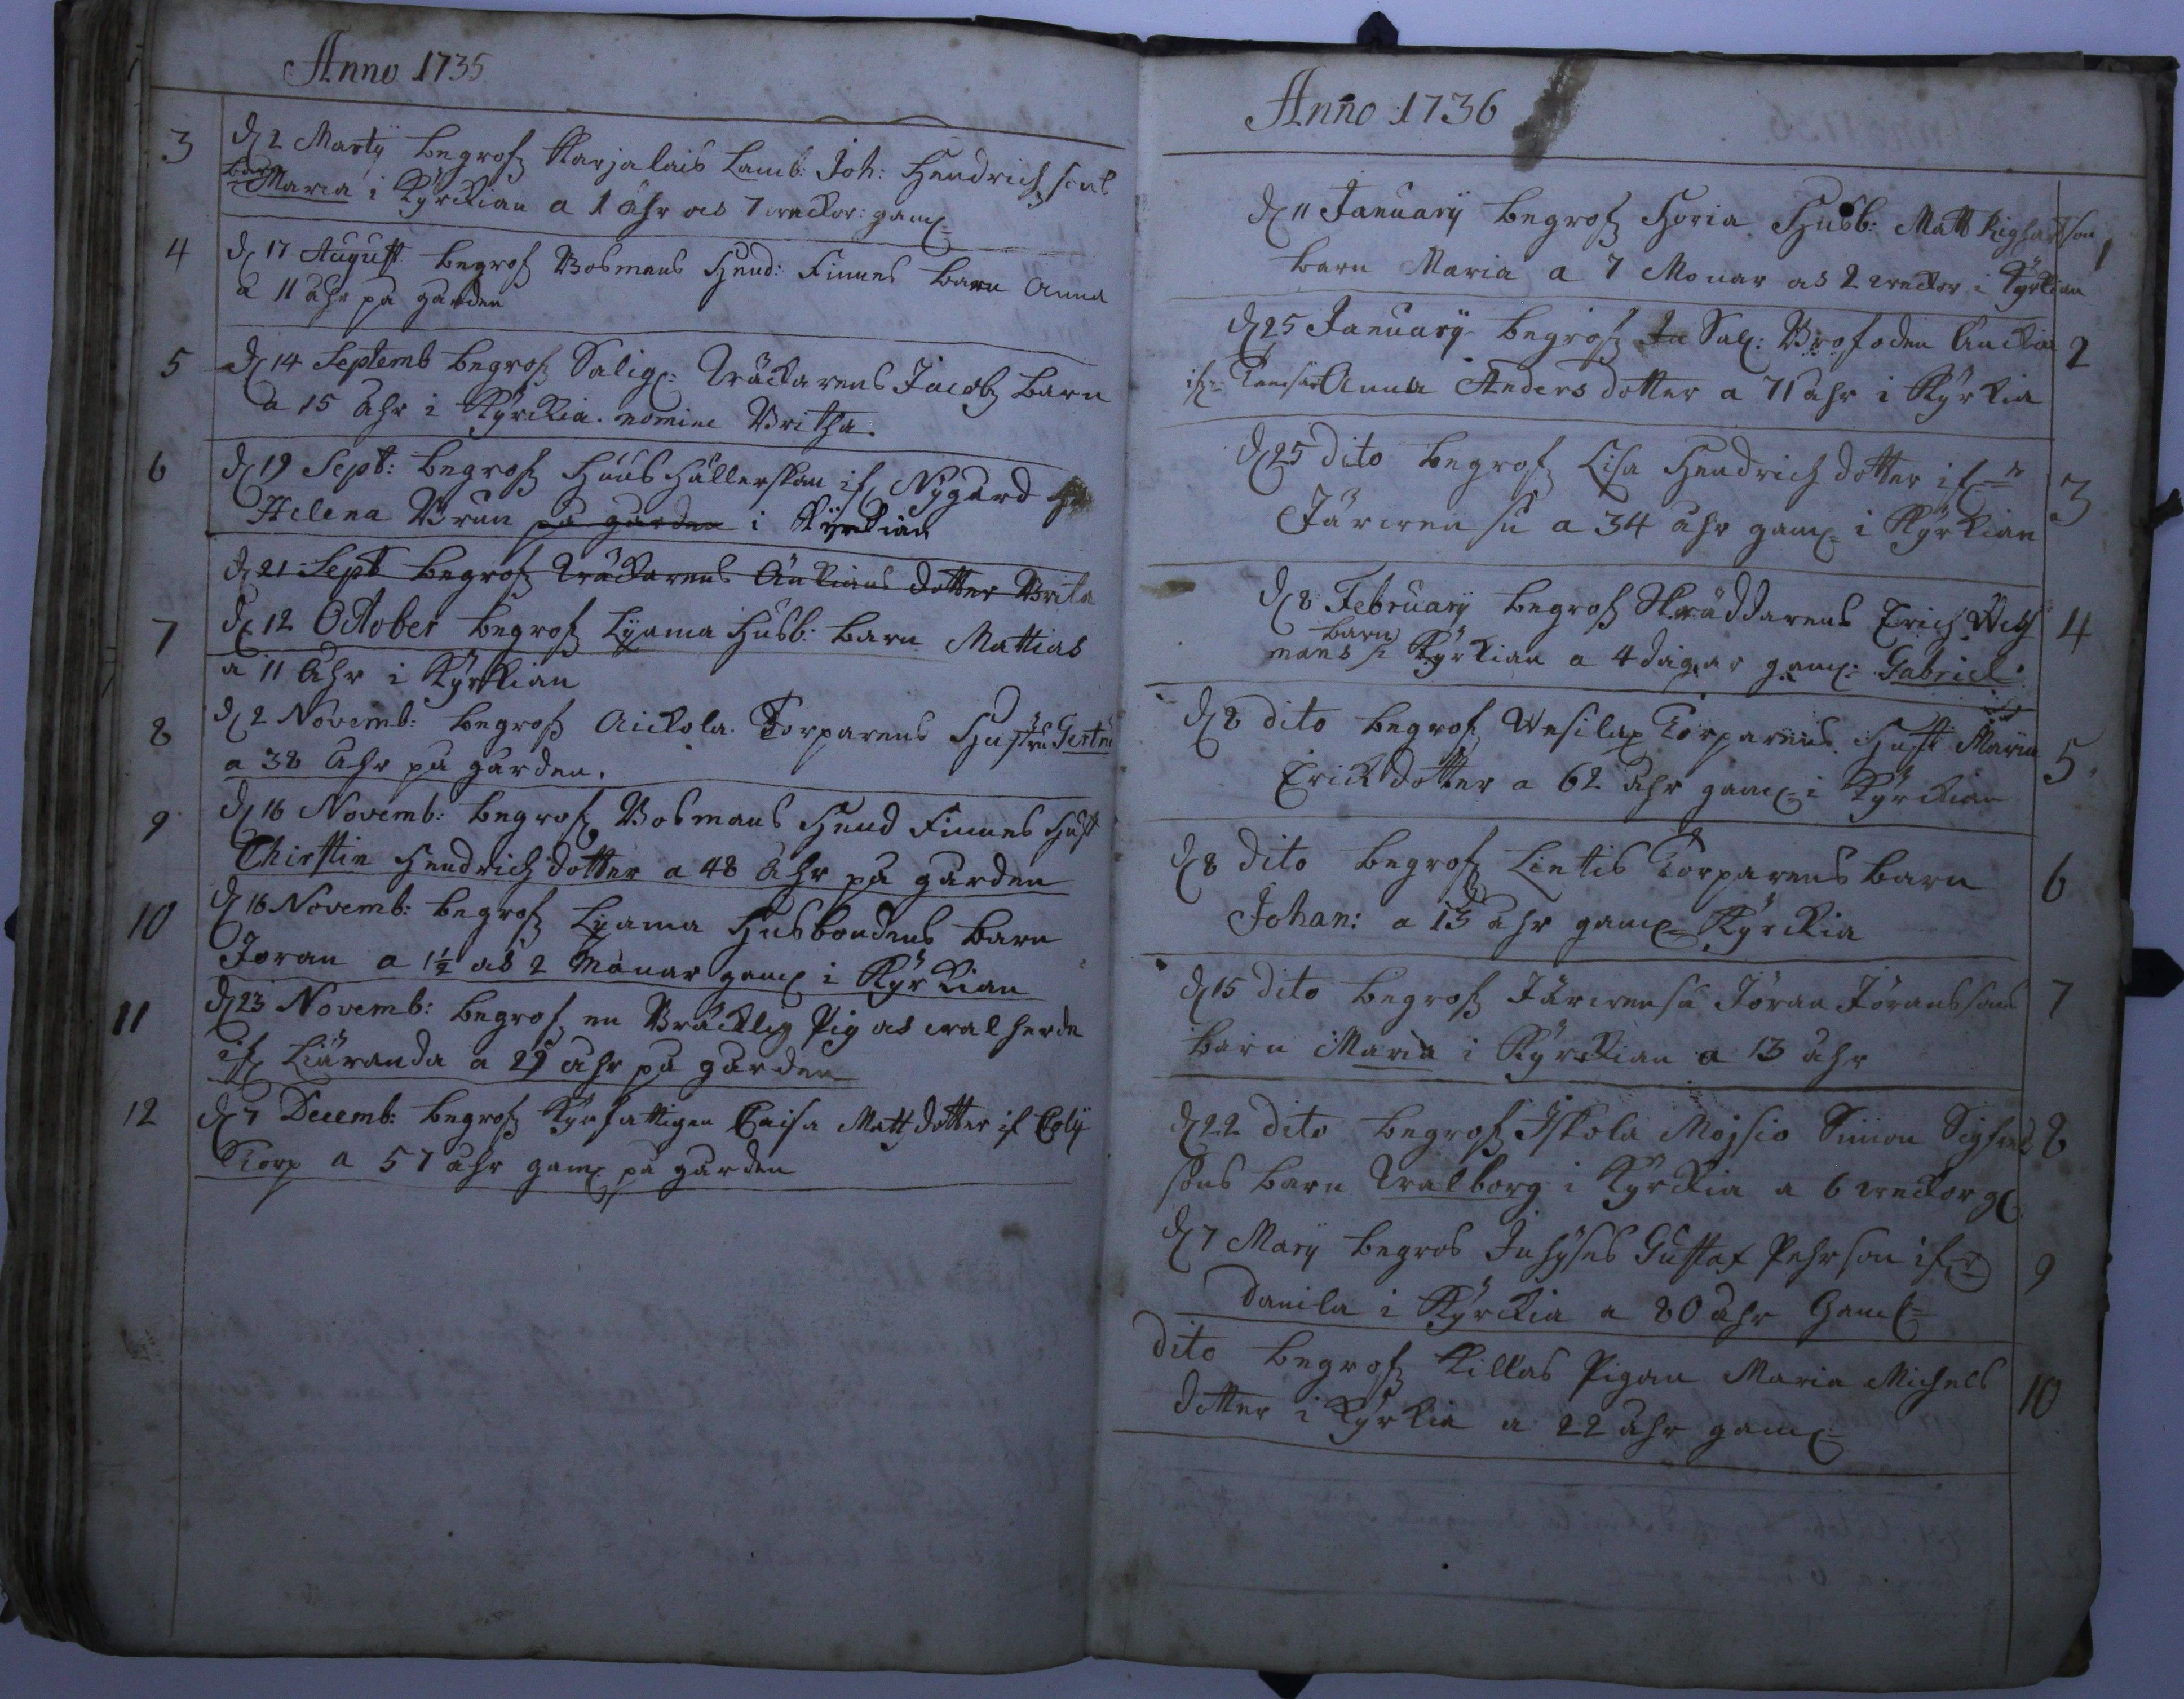 Anno 1735
3
d 2 Martÿ begrofz Karjalais Lamb: Joh: Hendrichsons
barn
Maria i Kyrckian a 1 åhr os 7 weckor: gaml=
4
d 17 August begrofz Bosmans Hend: Finnes barn Anna
a 11 åhr på gården
5
d 14 Septemb begrofz Salig: Bräckarens Jacobz barn
a 15 åhr i Kÿrckia. nomine Britha.
6
d 19 Sept: begrofz Huus Hållerskan if Nÿgård
Helena Brun på gården i Kÿrckian
d 21 Sept begrofz Bräckarens Änckians dotter Brita
7
d 12 October begrofz Lÿama Husb: barn Mattias
a 11 åhr i Kÿrckian
8
d 2 Novemb: begrofz Aickola Torparens Hustru Gertru
a 38 åhr på gården.
9
d 16 Novemb: begrofz Bosmans Hend Finnes Hust
Christin Hendrichdotter a 48 åhr på gården
10
d 16 Novemb: begrofz Lÿama Husbondens barn
Joran a 1½ os 2 Månar gaml i Kÿrckian
11
d 23 Novemb: begrofz en Bräcklig Pig os walherde
if Liäranda a 29 åhr på gården
12
d 7 Decemb: begrofz Kÿrfattigen Caisa Mattzdotter if
Torp a 57 åhr gaml på gården
Anno 1736
d 11 Januarÿ begrofz Horia Husb: Matt Righartson 1
barn Maria a 7 Monar os 2 weckor i Kÿrckian
d 25 Januarÿ begrofz Sal: Brofoden Änckia 2
Anna Anders dotter a 71 åhr i Kÿrkia
d 25 dito begrofz Lisa Hendrich dotter if 3
Järwensu a 34 åhr gaml= i Kÿrkian
d 8 Februarÿ begrofz Skräddarens Erich Weg 4
barn
mans i Kÿrkian a 4 dagar gaml: Gabriel
d 8 dito begrofz Wesilax Torparens Hust Maria 5
Erickdotter a 62 åhr gaml= i Kÿrckian
d 8 dito begrofz Lintis Torparens barn 6
Johan: a 13 åhr gaml= Kÿrckia
d 15 dito begrofz Järwensu Jöran Jöranssons 7
barn Maria i Kÿrckian a 13 åhr
d 22 dito begrofz Iskola Mojsio Simon Sigfred 8
sons barn Walborg i Kÿrckia a 6 weckor g
d 7 Marÿ begrob Inhÿses Gustaf Pehrson if 9
Danila i Kÿrckia a 80 åhr Gaml=
dito begrofz Killas Pigan Maria Michels 10
dotter i Kÿrkia a 22 åhr gaml=